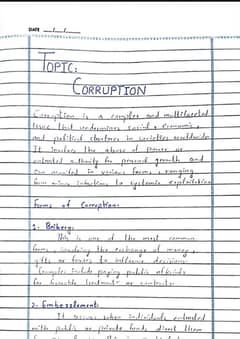 DATE
TOPIC:
CORRUPTION
Corruption is a complex and multifaceted
issue that undermines social, economic,
and political structures in societies worldwide.
It involves the abuse of power or
entrusted authority for personal growth and
can manifest in various forms, ranging
from minor infractions to systemic exploitation
Forms of Corruption:
1- Bribery:
This is one of the most common
forms, involving the exchange of money,
gifts or favors to influence decisions.
Examples include paying public officials
for favorable treatment or contracts.
2- Embezzlement:
It occurs when individuals entrusted
with public or private funds divert them